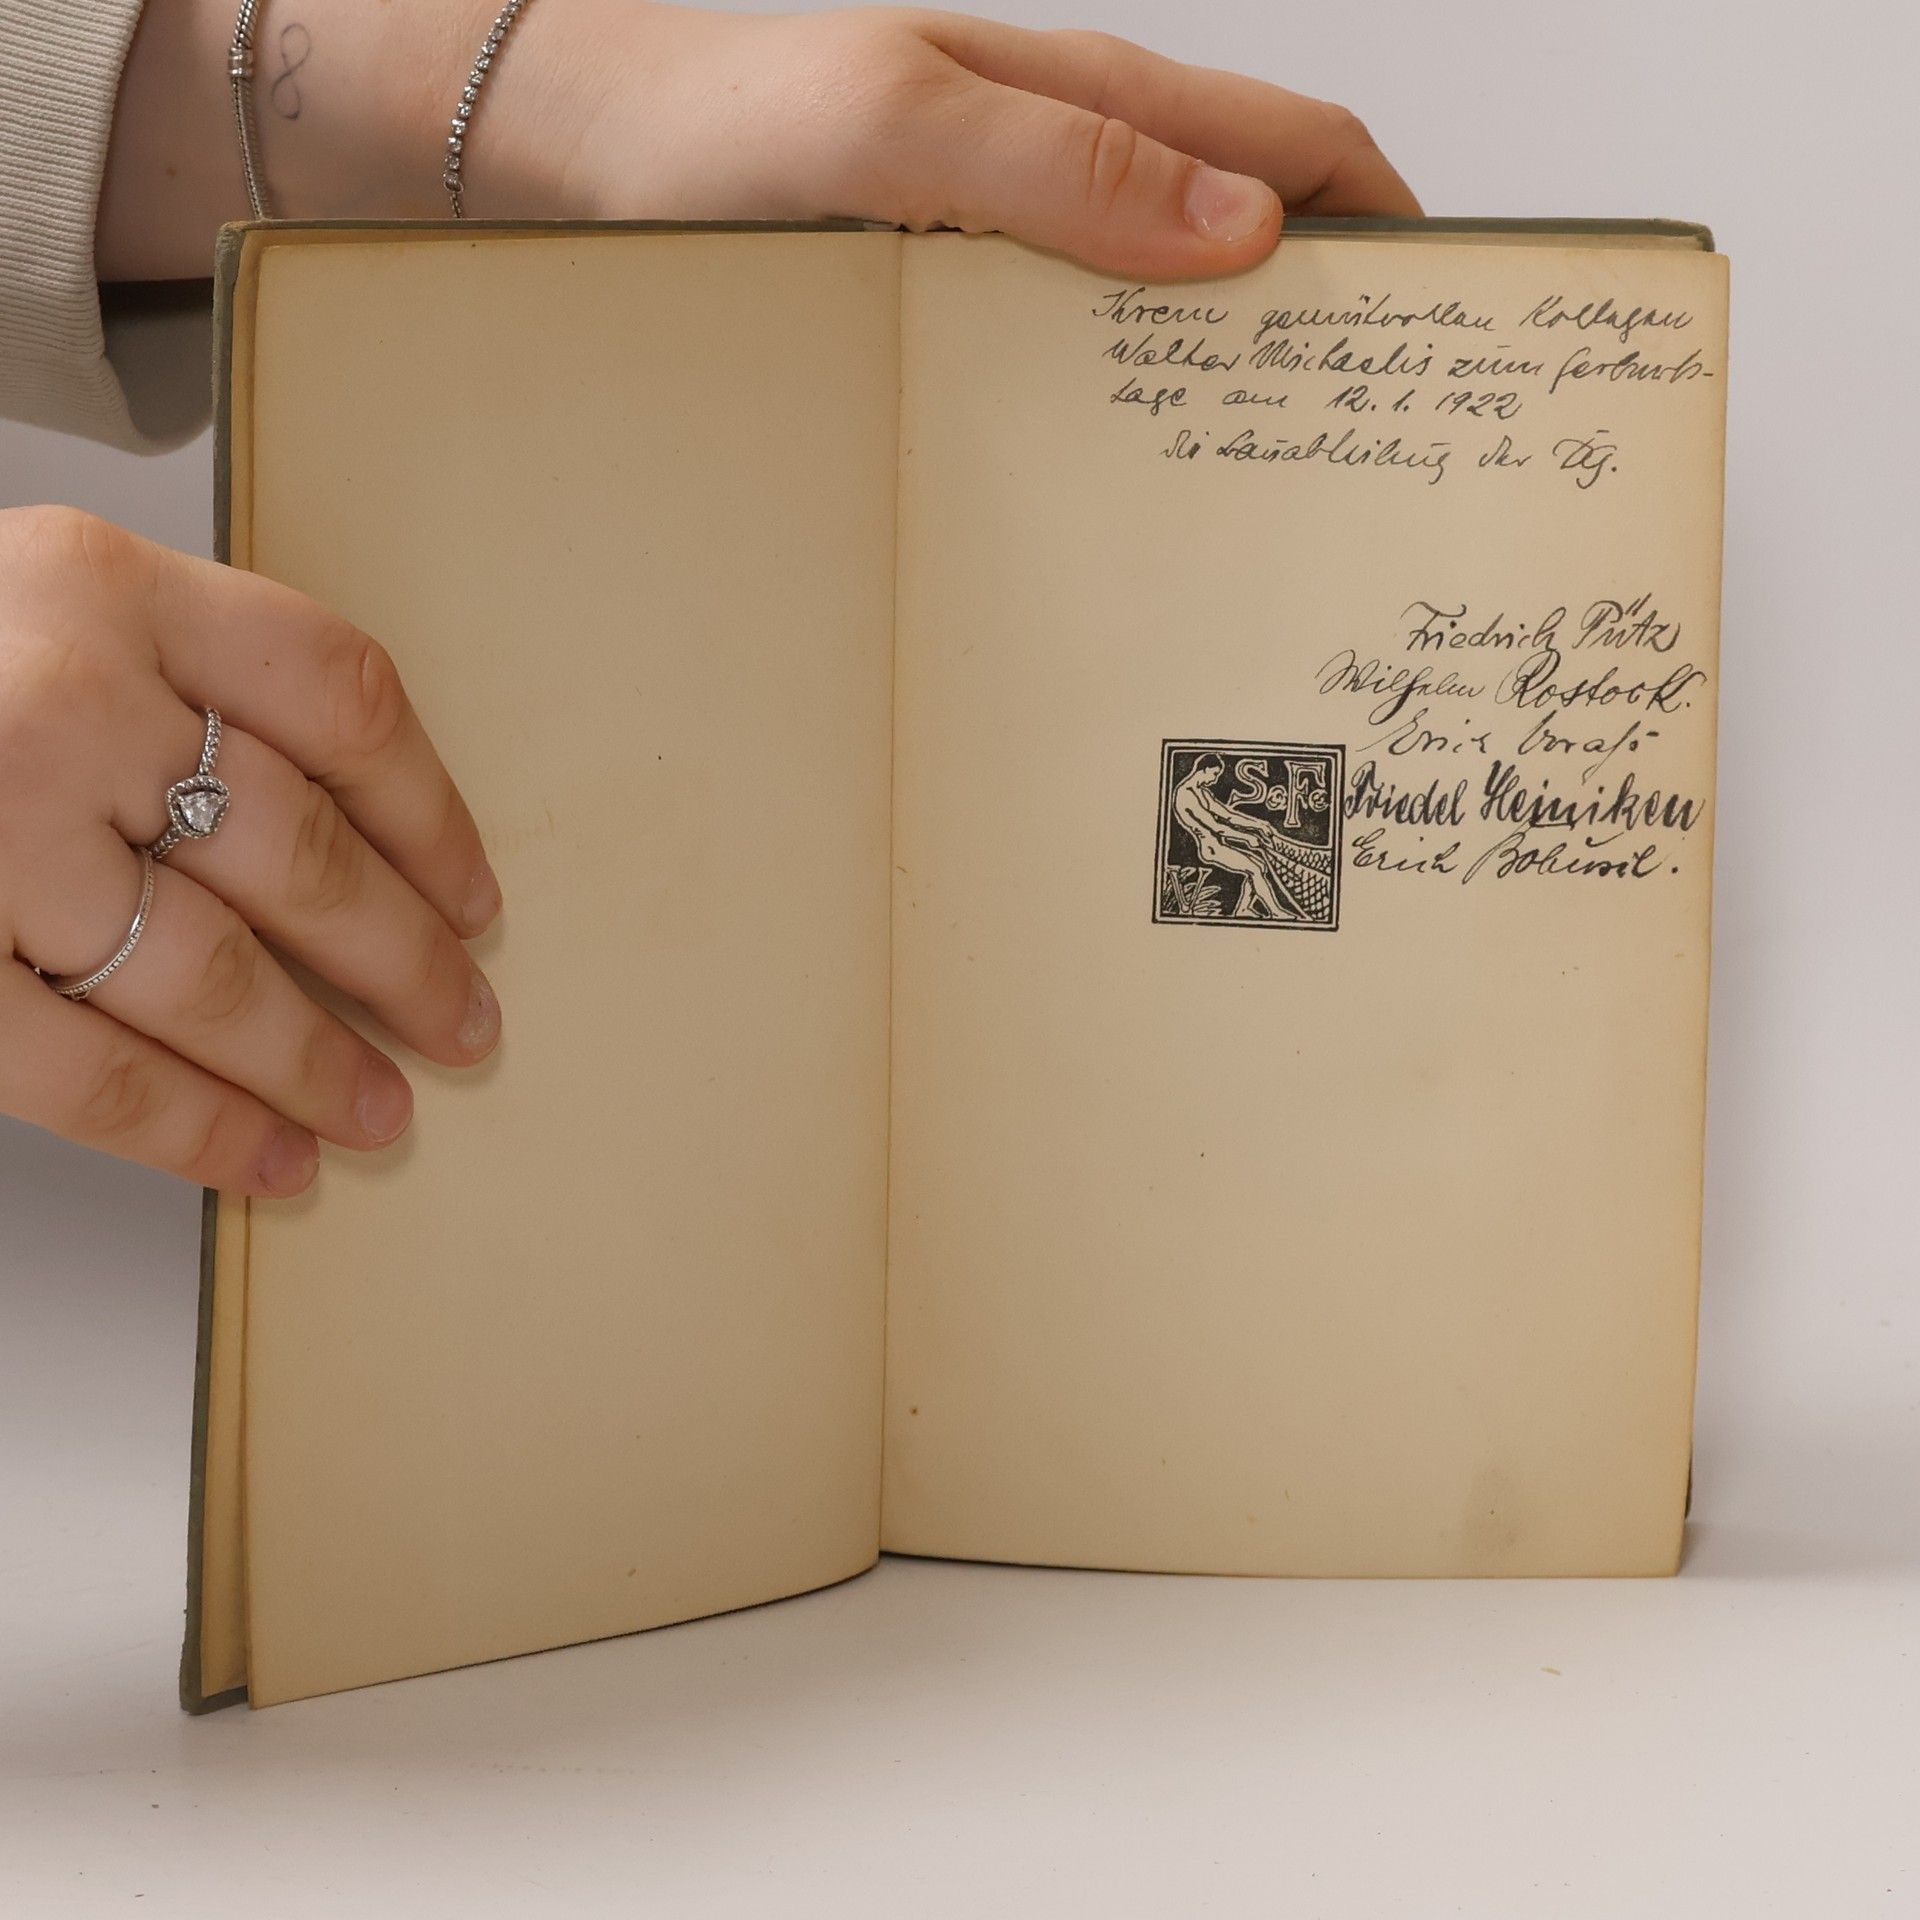 Ihrem gemütvollen Kollegen
Walter Michaelis zum Geburts-
tage am 12. 1. 1922
die Bauabteilung der
Friedrich Pütz
Wilhelm Rostock.
Erich
S.F.
Friedel Heiniken
Erich
V